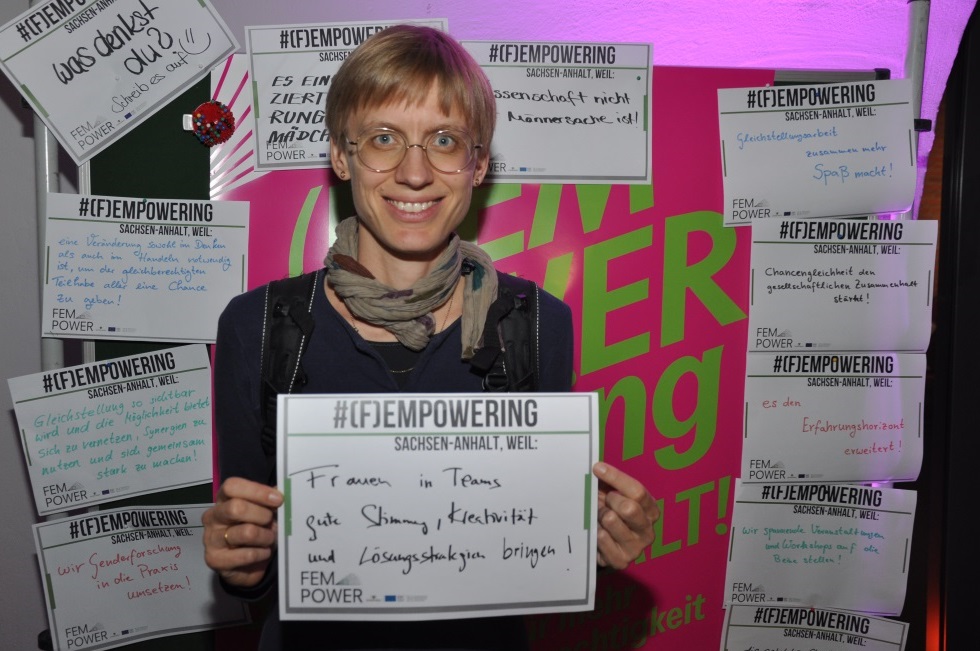 #(F)EMPOWERING
SACHSEN-ANHALT, WEIL:
was denkst
du?
Schreib es auf
FEM
POWER
#(F)EMPOWERING
SACHSEN-ANHALT, WEIL:
ES EIN
ZIERT
RUNG
MÄDCH
FEM
POWER
#(F)EMPOWERING
SACHSEN-ANHALT, WEIL:
ssenschaft nicht
Männersache ist!
#(F)EMPOWERING
SACHSEN-ANHALT, WEIL:
Gleichstellungsarbeit
zusammen mehr
Spaß macht!
FEM
POWER
#(F)EMPOWERING
SACHSEN-ANHALT, WEIL:
eine Veränderung sowohl im Denken
als auch im Handeln notwendig
ist, um der gleichberechtigten
Teilhabe aller eine Chance
zu geben!
FEM
POWER
#(F)EMPOWERING
SACHSEN-ANHALT, WEIL:
Chancengleichheit den
gesellschaftlichen Zusammenhalt
stärkt!
FEM
POWER
#(F)EMPOWERING
SACHSEN-ANHALT, WEIL:
Gleichstellung so sichtbar
wird und die Möglichkeit bietet
sich zu vernetzen, Synergien zu
nutzen und sich gemeinsam
stark zu machen!
FEM
POWER
#(F)EMPOWERING
SACHSEN-ANHALT, WEIL:
es den
Erfahrungshorizont
erweitert!
FEM
POWER
#(F)EMPOWERING
SACHSEN-ANHALT, WEIL:
Frauen in Teams
gute Stimmung, Kreativität
und Lösungsstrategien bringen!
FEM
POWER
#(F)EMPOWERING
SACHSEN-ANHALT, WEIL:
wir Genderforschung
in die Praxis
umsetzen!
FEM
POWER
#(F)EMPOWERING
SACHSEN-ANHALT, WEIL:
wir spannende Veranstaltungen
und Workshops auf die
Beine stellen!
FEM
POWER
#(F)EMPOWERING
SACHSEN-ANHALT, WEIL:
(EM
WER
ng
LT!
mehr
chtigkeit